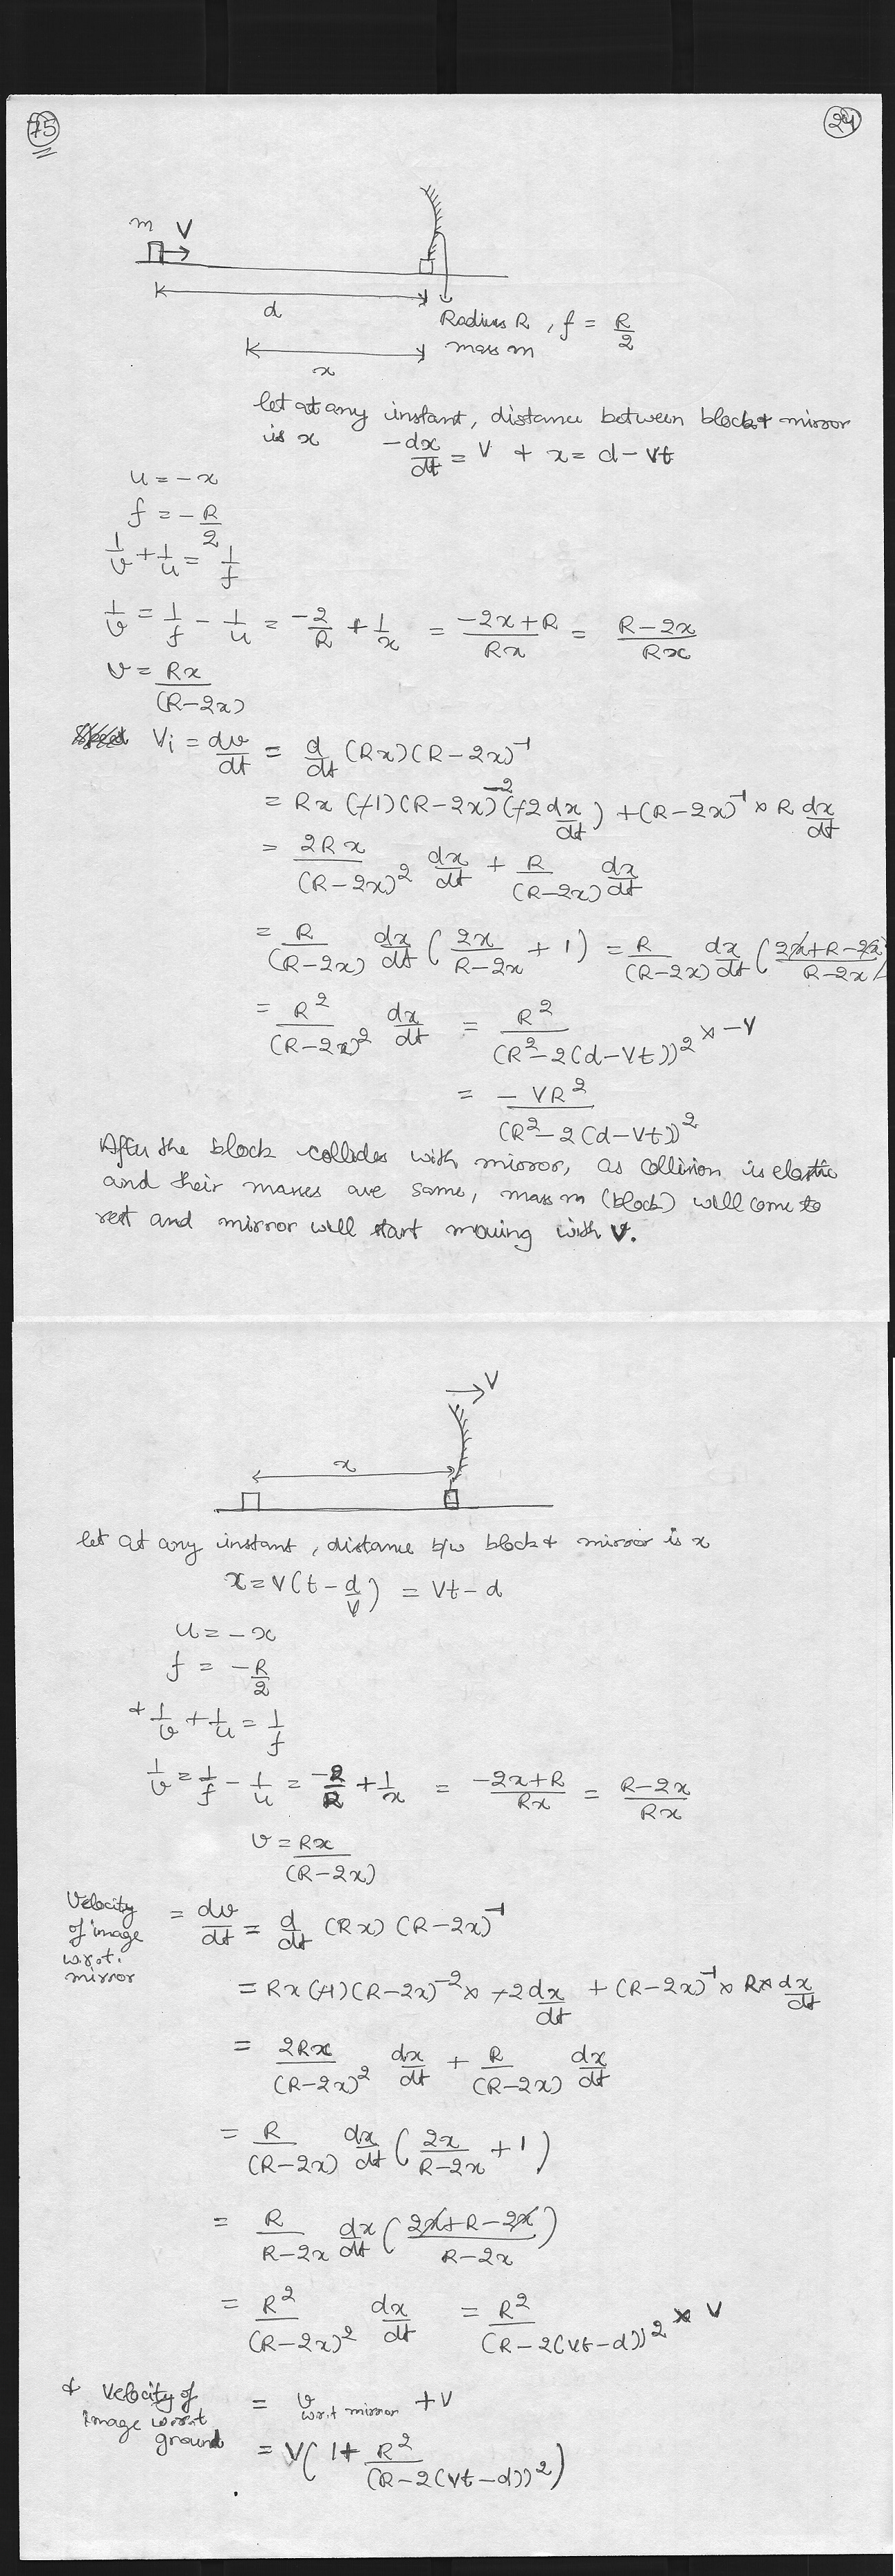 75
24
m V
d
Radius R, f = R/2
mass m
x
let at any instant, distance between block & mirror
is x -dx/dt = V & x = d - Vt
u = -x
f = -R/2
1/v + 1/u = 1/f
1/v = 1/f - 1/u = -2/R + 1/x = (-2x+R)/Rx = (R-2x)/Rx
v = Rx/(R-2x)
Vi = dv/dt = d/dt (Rx)(R-2x)^-1
= Rx (-1)(R-2x)^-2 (-2 dx/dt) + (R-2x)^-1 × R dx/dt
= 2Rx/(R-2x)^2 dx/dt + R/(R-2x) dx/dt
= R/(R-2x) dx/dt (2x/(R-2x) + 1) = R/(R-2x) dx/dt ((2x+R-2x)/(R-2x))
= R^2/(R-2x)^2 dx/dt = R^2/(R^2-2(d-Vt))^2 × -V
= -VR^2/(R^2-2(d-Vt))^2
After the block collides with mirror, as collision is elastic
and their masses are same, mass m (block) will come to
rest and mirror will start moving with V.
V
x
let at any instant, distance b/w block & mirror is x
x = V(t - d/V) = Vt - d
u = -x
f = -R/2
& 1/v + 1/u = 1/f
1/v = 1/f - 1/u = -2/R + 1/x = (-2x+R)/Rx = (R-2x)/Rx
v = Rx/(R-2x)
Velocity of image w.r.t. mirror = dv/dt = d/dt (Rx)(R-2x)^-1
= Rx (-1)(R-2x)^-2 × -2 dx/dt + (R-2x)^-1 × R × dx/dt
= 2Rx/(R-2x)^2 dx/dt + R/(R-2x) dx/dt
= R/(R-2x) dx/dt (2x/(R-2x) + 1)
= R/(R-2x) dx/dt ((2x+R-2x)/(R-2x))
= R^2/(R-2x)^2 dx/dt = R^2/(R-2(Vt-d))^2 × V
& Velocity of image w.r.t ground = v w.r.t mirror + V
= V(1 + R^2/(R-2(Vt-d))^2)